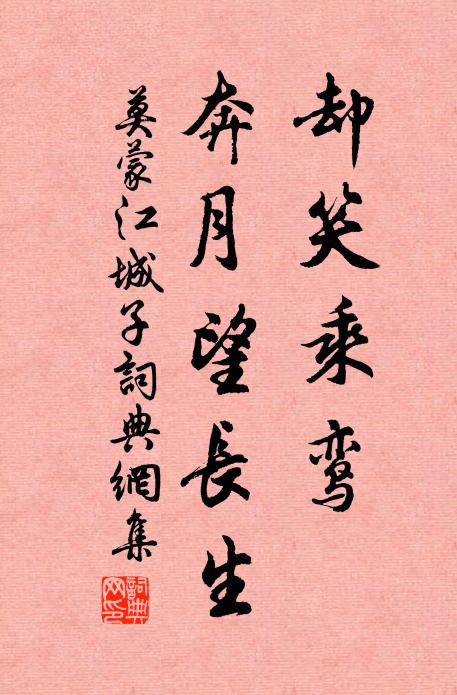 却笑乘鸾
奔月望長生
莫蒙江城子詞典網集
詞典网印